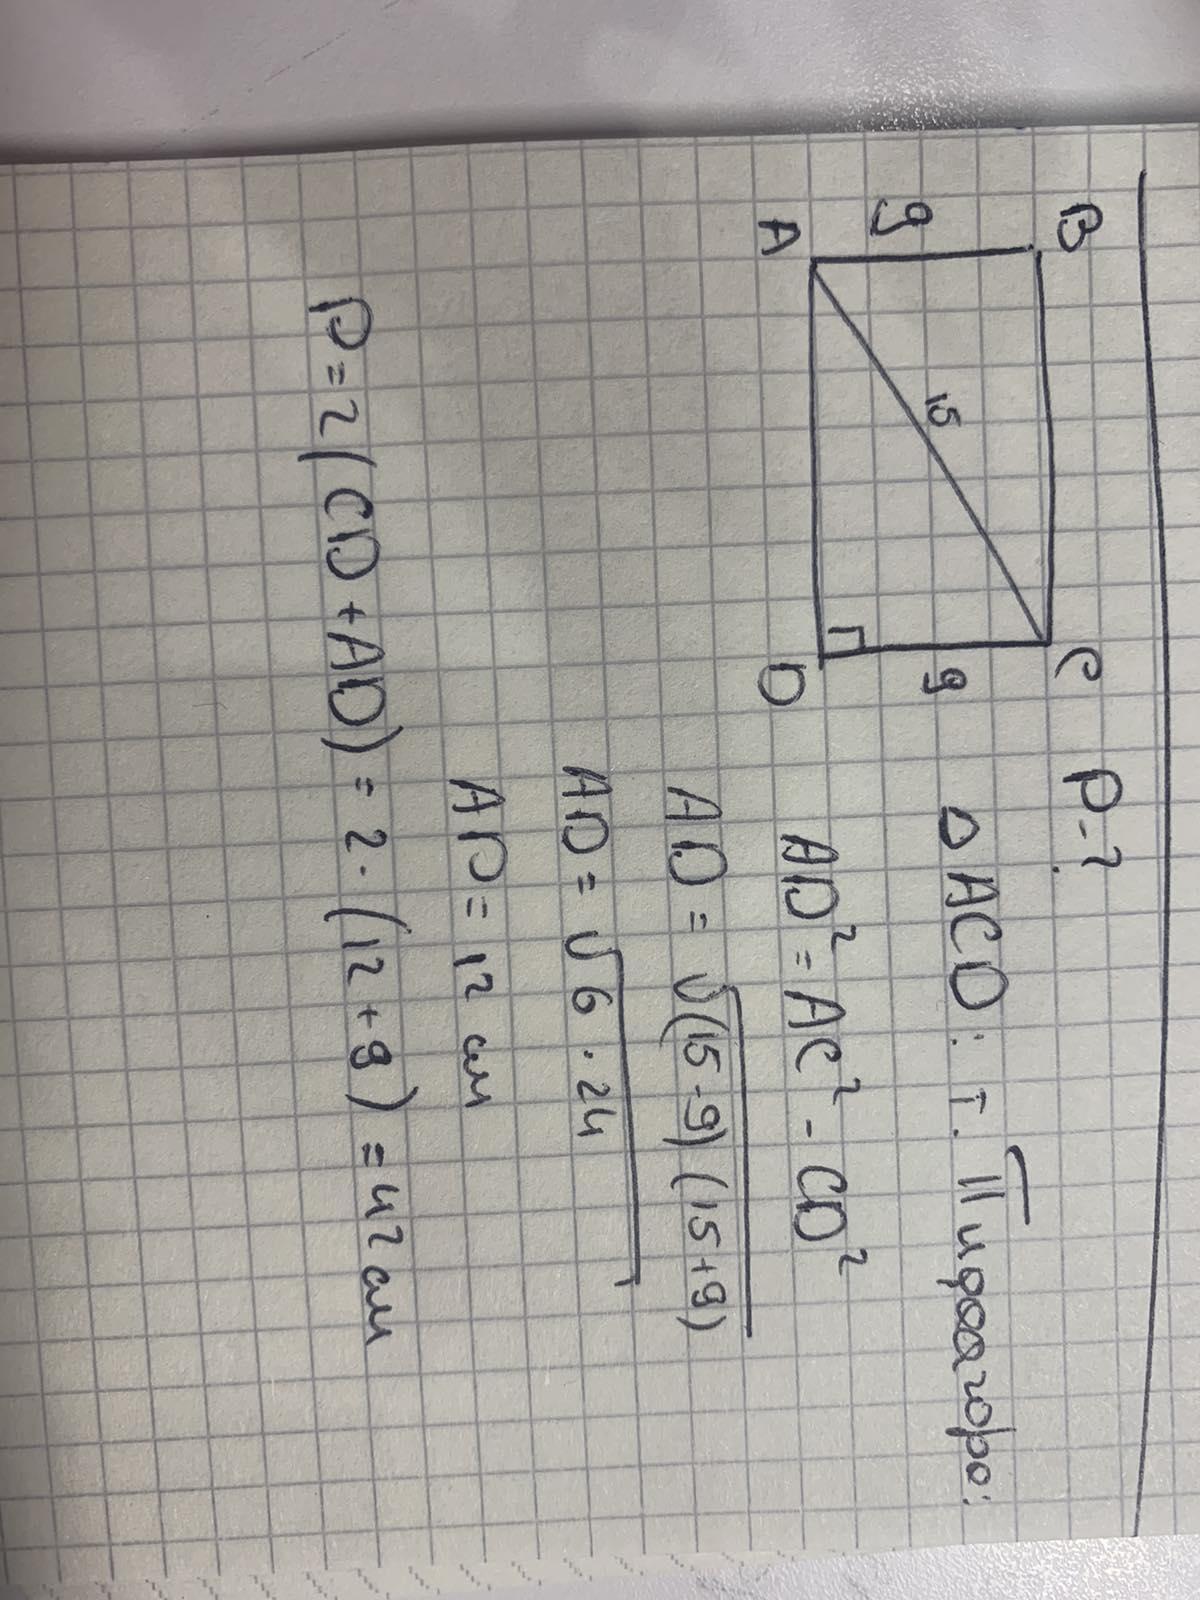 B C P-?
9 15 9
A D
△ACD: т. Пифагора:
AD² = AC² - CD²
AD = √(15-9)(15+9)
AD = √6 · 24
AD = 12 см
P = 2(CD + AD) = 2 · (12 + 9) = 42 см